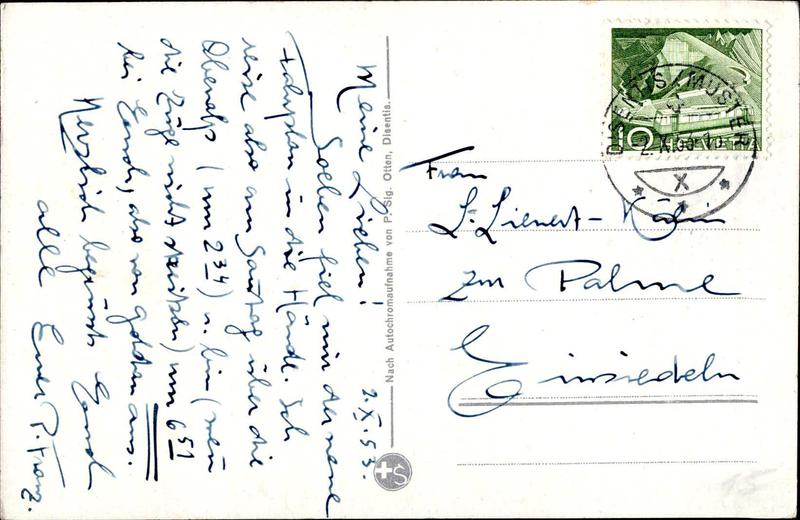 Meine Lieben! 2.X.53.
Soeben fiel mir der neue
Fahrplan in die Hände. Ich
reise also am Samstag über die
Oberalp (um 2 34) u. bin (wenn
die Züge nicht) um 6 51
bei Euch, also von Goldau aus.
Herzlich begrüsst Euch
alle Euer P. Franz.
Nach Autochromaufnahme von P. Sig. Otten, Disentis.
S
DISENTIS/MUSTER
2.X.53
X
10
HELVETIA
Frau
L. Lienert-Kälin
zur Palme
Einsiedeln
15